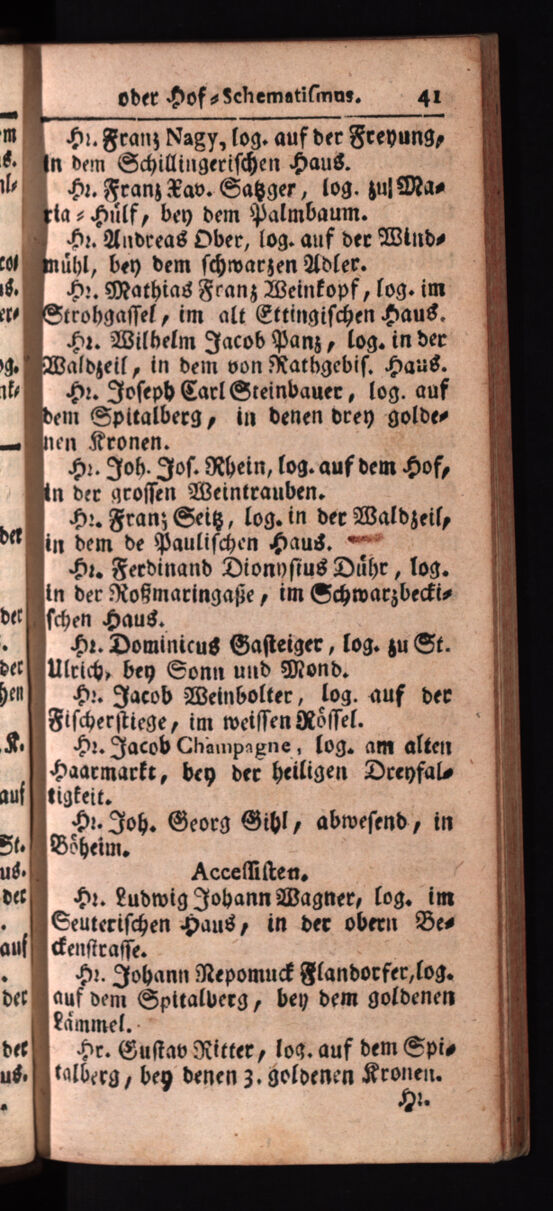 oder Hof-Schematismus. 41
Hr. Franz Nagy, log. auf der Freyung,
in dem Schillingerischen Haus.
Hr. Franz Xav. Satzger, log. zu Ma-
ria-Hülf, bey dem Palmbaum.
Hr. Andreas Ober, log. auf der Wind-
mühl, bey dem schwarzen Adler.
Hr. Mathias Franz Weinkopf, log. im
Strohgassel, im alt Ettingischen Haus.
Hr. Wilhelm Jacob Panz, log. in der
Waldzeil, in dem von Rathgebis. Haus.
Hr. Joseph Carl Steinbauer, log. auf
dem Spitalberg, in denen drey golde-
nen Kronen.
Hr. Joh. Jos. Rhein, log. auf dem Hof,
in der grossen Weintrauben.
Hr. Franz Seitz, log. in der Waldzeil,
in dem de Paulischen Haus.
Hr. Ferdinand Dionysius Dühr, log.
in der Roßmaringaße, im Schwarzbecki-
schen Haus.
Hr. Dominicus Gasteiger, log. zu St.
Ulrich, bey Sonn und Mond.
Hr. Jacob Weinbolter, log. auf der
Fischerstiege, im weissen Rössel.
Hr. Jacob Champagne, log. am alten
Haarmarkt, bey der heiligen Dreyfal-
tigkeit.
Hr. Joh. Georg Gihl, abwesend, in
Böheim.
Accessisten.
Hr. Ludwig Johann Wagner, log. im
Seuterischen Haus, in der obern Be-
ckenstrasse.
Hr. Johann Nepomuck Flandorfer, log.
auf dem Spitalberg, bey dem goldenen
Lämmel.
Hr. Gustav Ritter, log. auf dem Spi-
talberg, bey denen 3. goldenen Kronen.
Hr.